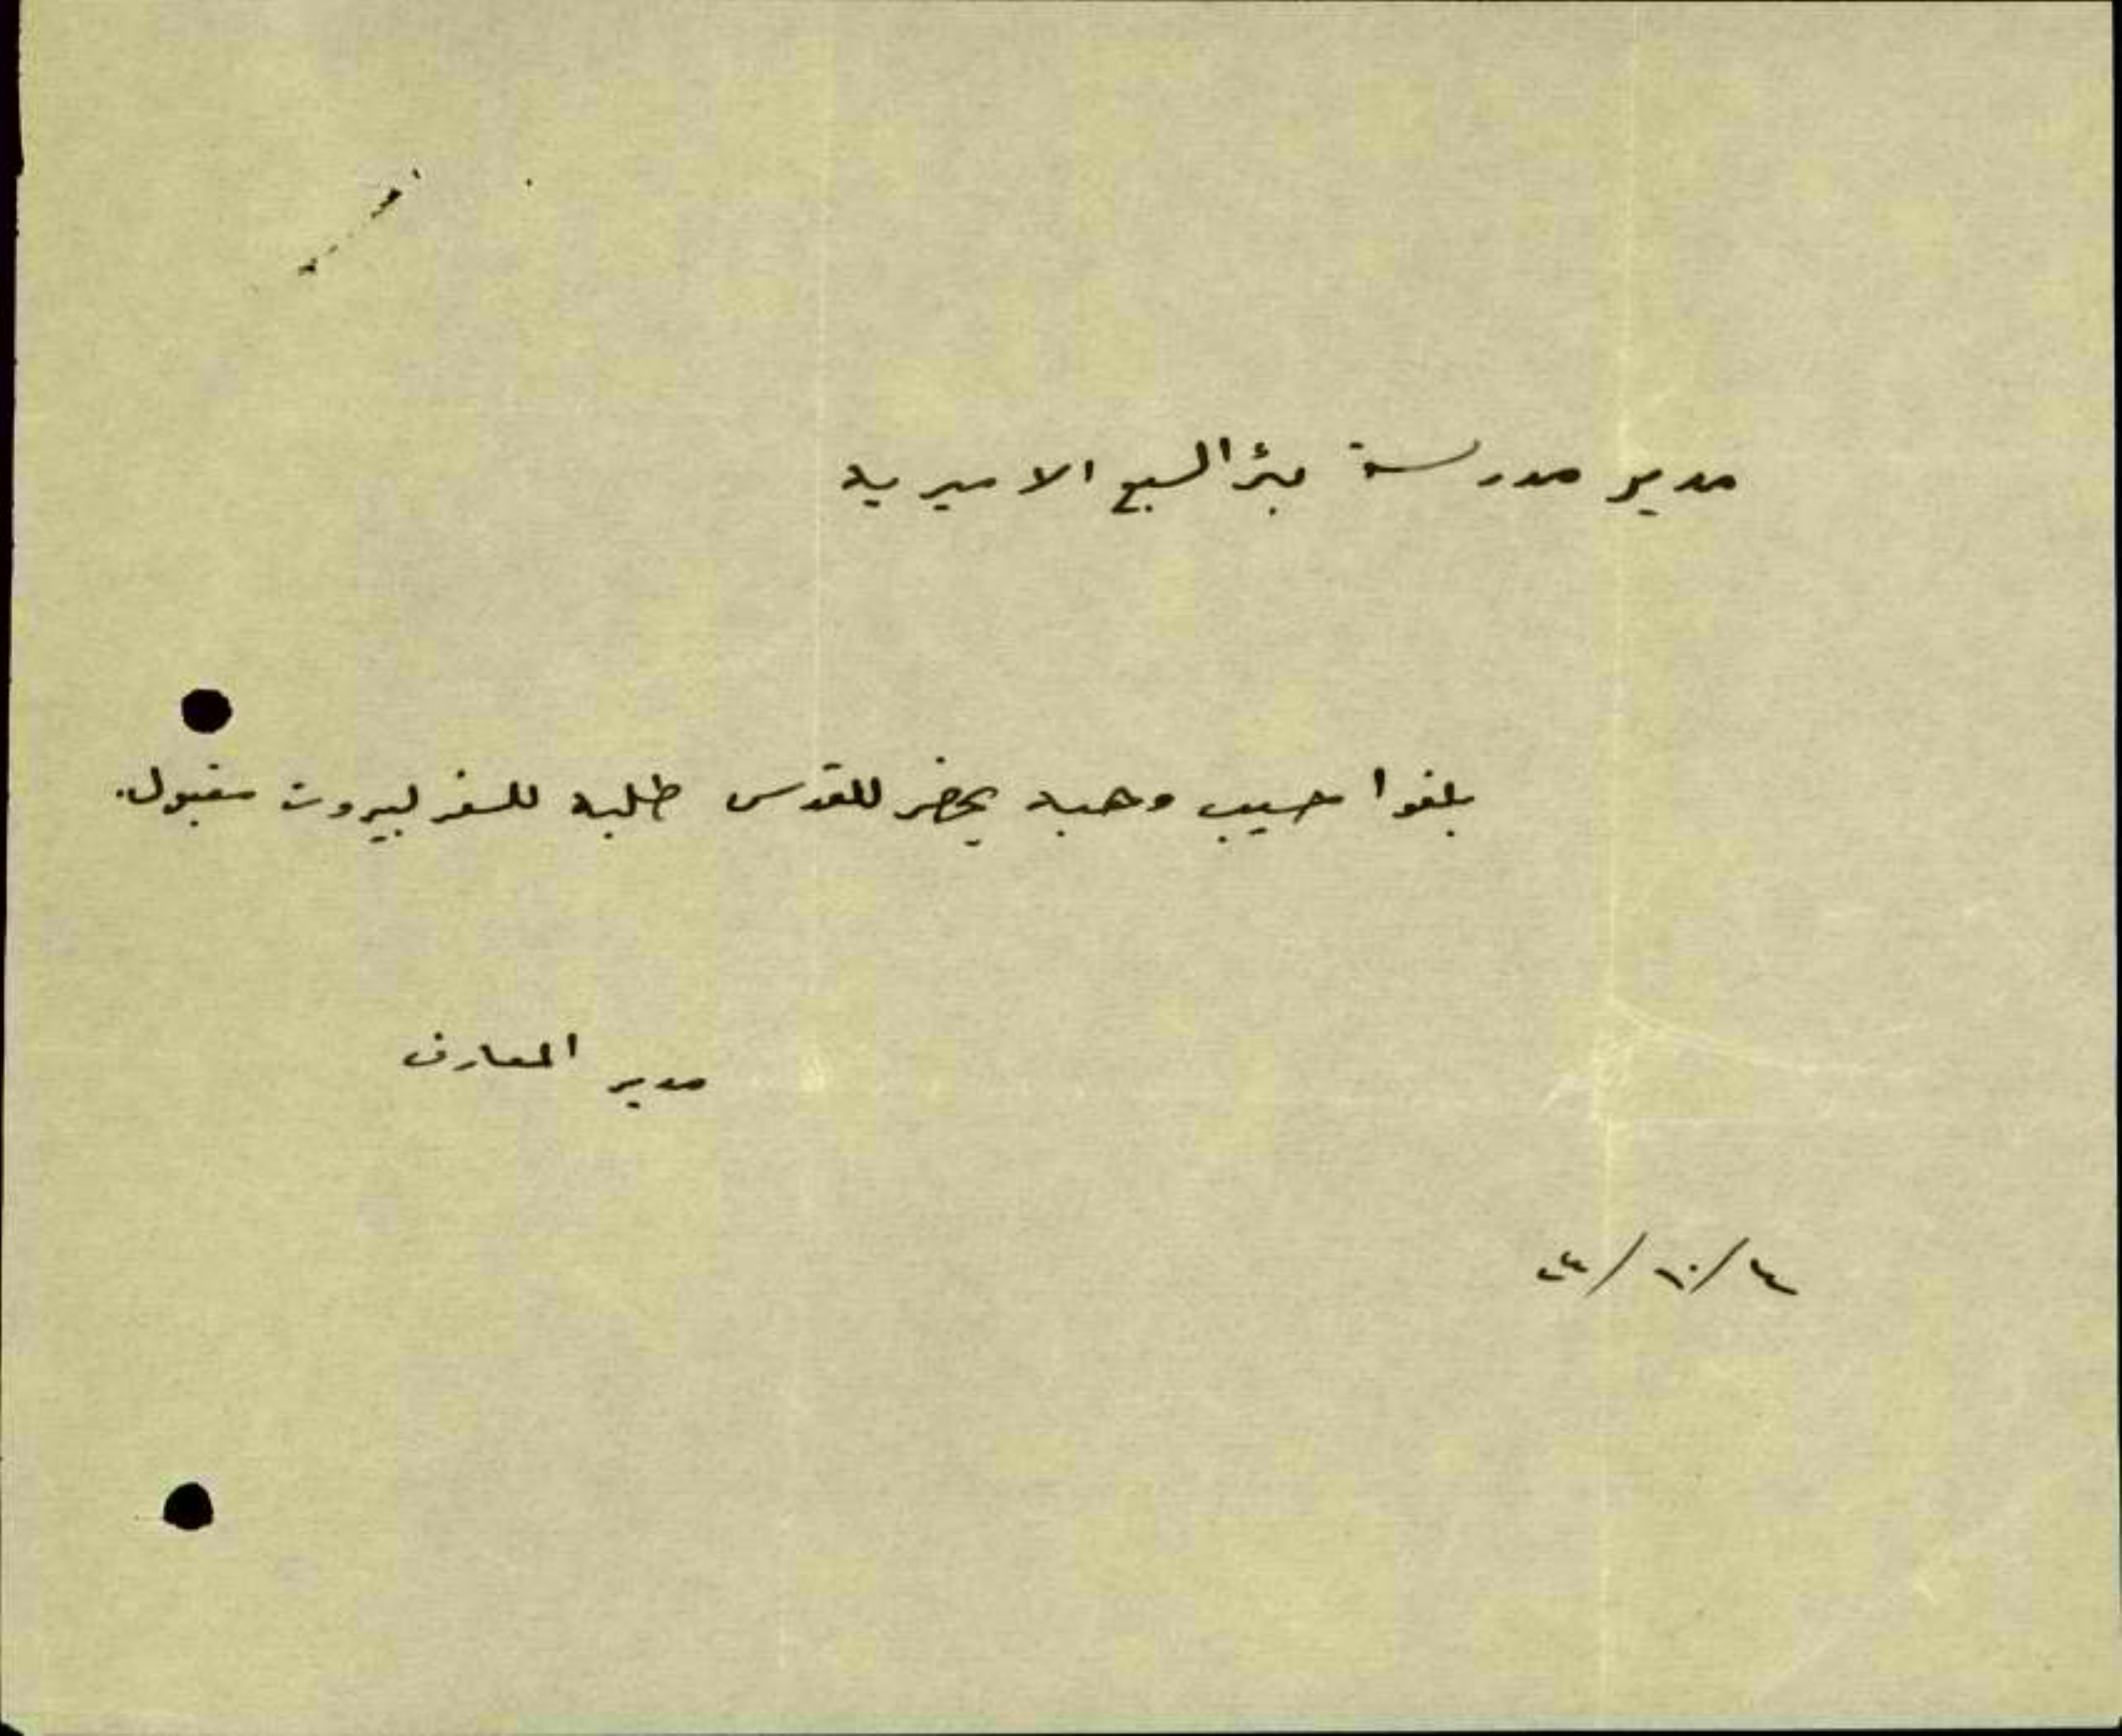 مدير مدرسة بئر السبع الاميريه
بلغوا حسيب وهبه يحضر للقدس طلبه للسفر لبيروت مقبول.
مدير المعارف